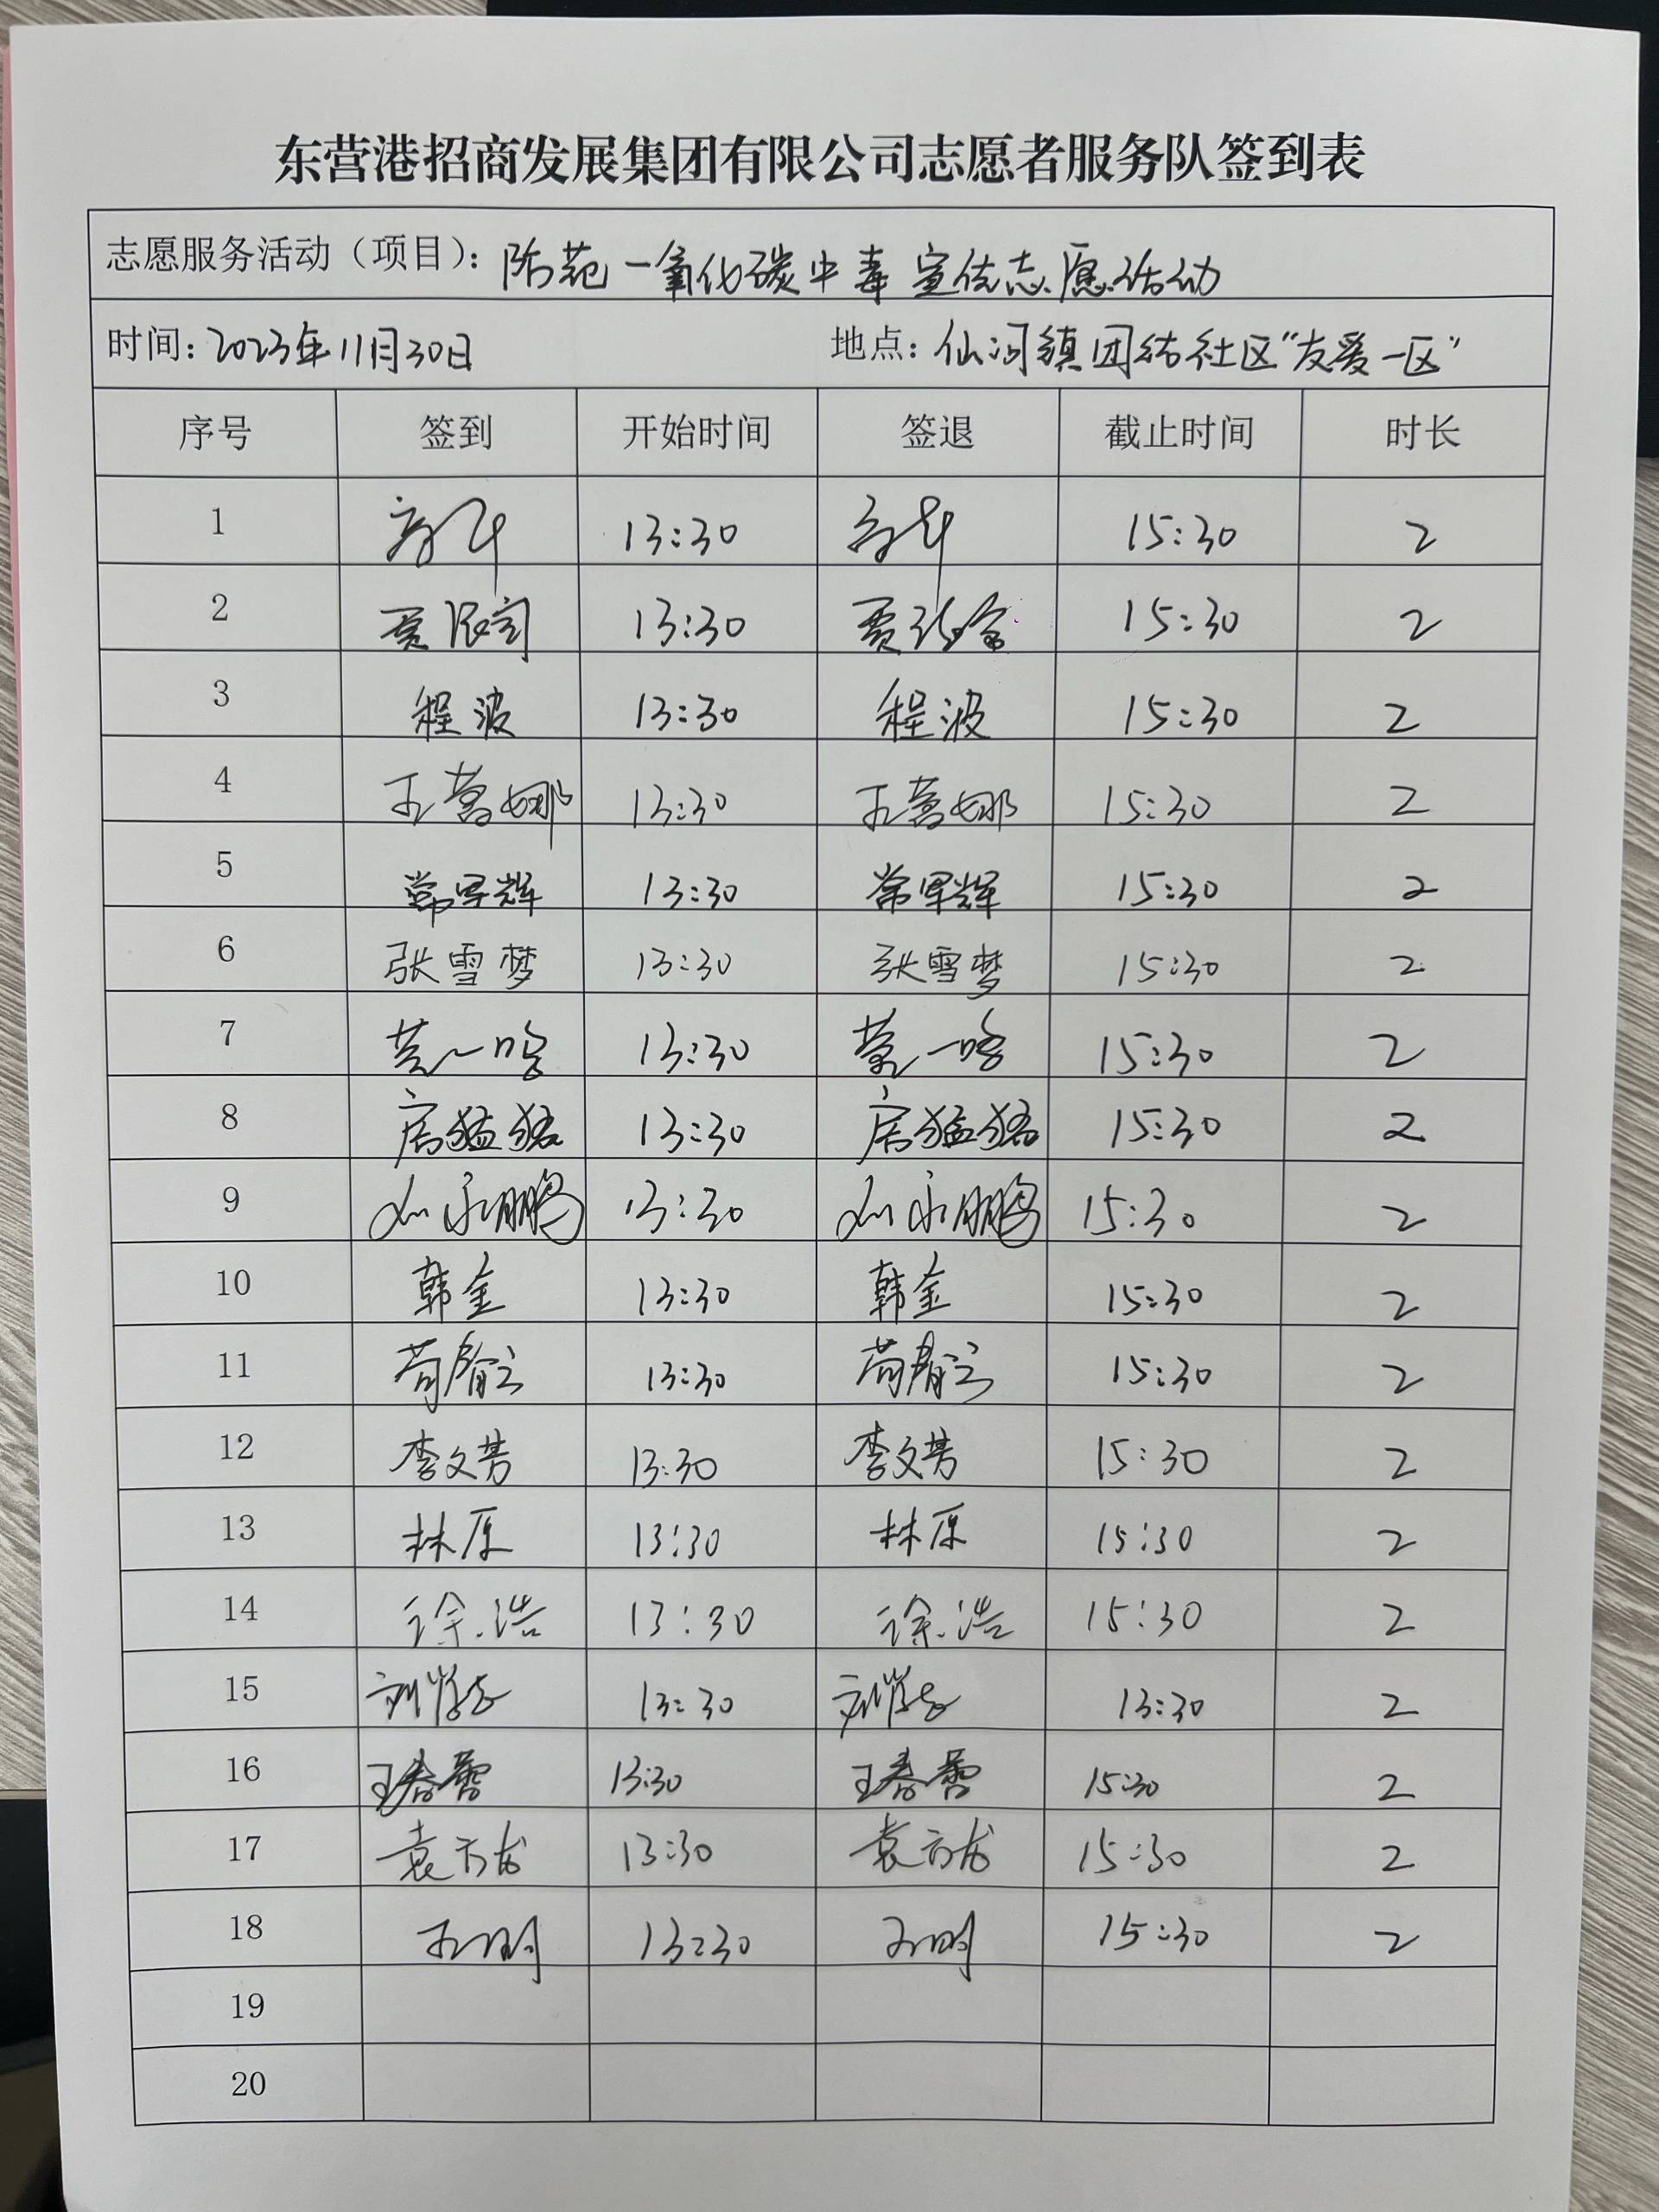 东营港招商发展集团有限公司志愿者服务队签到表
志愿服务活动（项目）：防范一氧化碳中毒宣传志愿活动
时间：2023年11月30日 地点：仙河镇团结社区“友爱一区”
序号 签到 开始时间 签退 截止时间 时长
1 13:30 15:30 2
2 贾 13:30 贾 15:30 2
3 程波 13:30 程波 15:30 2
4 王营娜 13:30 王营娜 15:30 2
5 常军辉 13:30 常军辉 15:30 2
6 张雪梦 13:30 张雪梦 15:30 2
7 13:30 15:30 2
8 房猛猛 13:30 房猛猛 15:30 2
9 永鹏 13:30 永鹏 15:30 2
10 韩金 13:30 韩金 15:30 2
11 13:30 15:30 2
12 李文芳 13:30 李文芳 15:30 2
13 林原 13:30 林原 15:30 2
14 徐浩 13:30 徐浩 15:30 2
15 刘 13:30 刘 13:30 2
16 王春蕾 13:30 王春蕾 15:30 2
17 袁方龙 13:30 袁方龙 15:30 2
18 王明 13:30 王明 15:30 2
19
20